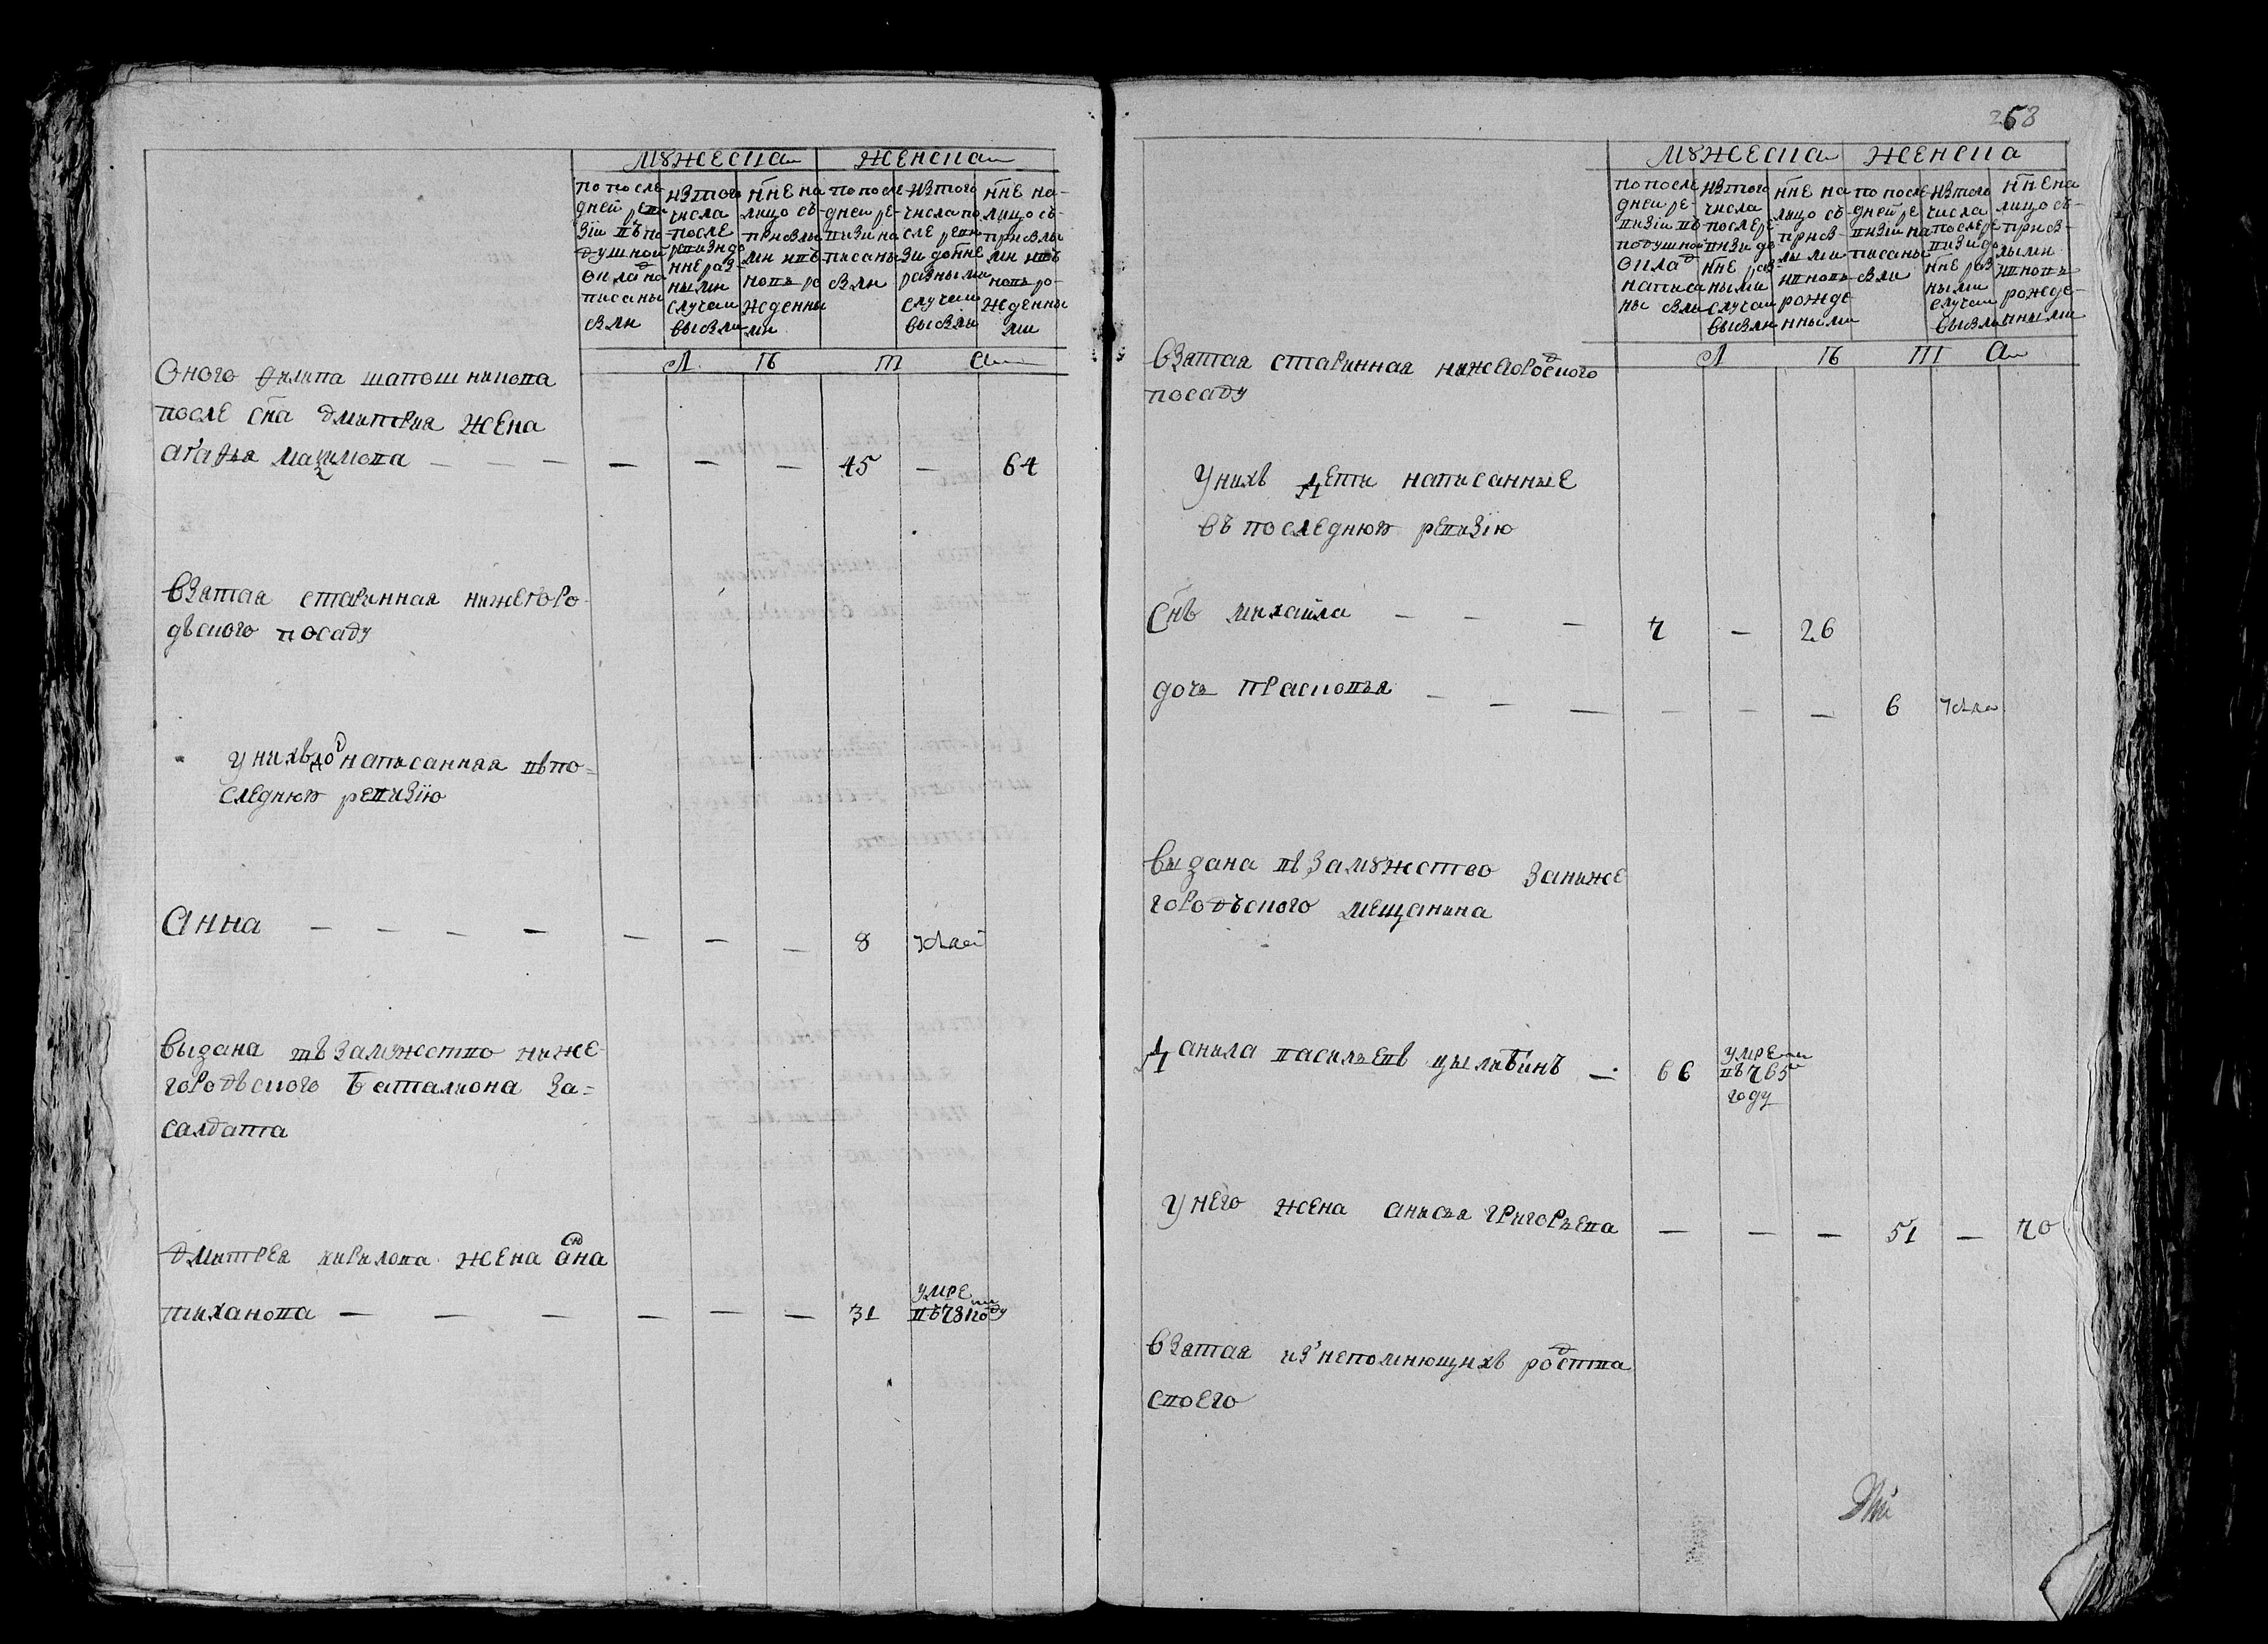 мꙋжеска женска
по после
дней реви
зіи въ по
душной
окладъ на
писаны
были
изъ того
числа
после
ревизи до
нне раз
ными
случаи
выбыли
нне на
лицо съ
прибылы
ми и въ
новь ро
жденны
ми
по после
дней ре-
визи на
писаны
были
из того
числа по
сле реви
зи до нне
разными
случаи
выбыли
нне на-
лицо съ-
прибылы
ми и въ
новь ро-
жденны
ми
Л Ѣ Т А
Оного филипа шапошникова
после сна дмитрия жена
агафья мазимова — — — — — — 45 — 64
взятая старинная нижегоро-
дъского посаду
у нихъ дочь написанная въ по=
следнюю ревизїю
Анна — — — — — — — 8
выдана въ замужство ниже-
городъского баталиона за=
салдата
дмитрея кирилова жена анна
тиханова — — — — — — 31 умре въ 781 году
268
мꙋжеска женска
по после
дней ре-
визіи въ
подушной
окладъ
написа
ны были
из того
числа
после ре
визи до
нне раз
ными
случаи
выбыли
нне на
лицо съ-
приб-
лыми
и вновь
рожде-
нными
по после-
дней ре
визіи на
писаны
были
из того
числа
после ре
визи до
нне раз
ными
случаи
выбыли
нне на
лицо съ-
приб-
лыми
и вновь
рожде-
нными
Л Ѣ Т А
взятая старинная нижегородского
посаду
У нихъ дети написанные
въ последнюю ревизїю
Снъ михаила — — — 7 — 26
дочь прасковья — — — — — — 6
выдана въ замꙋжство за ниже
городъского мещанина
Данила васильевъ цылибинъ — 66 умре въ 765 году
У него жена анисья григорьева — — — 51 — 70
взятая из непомнющихъ родства
своего